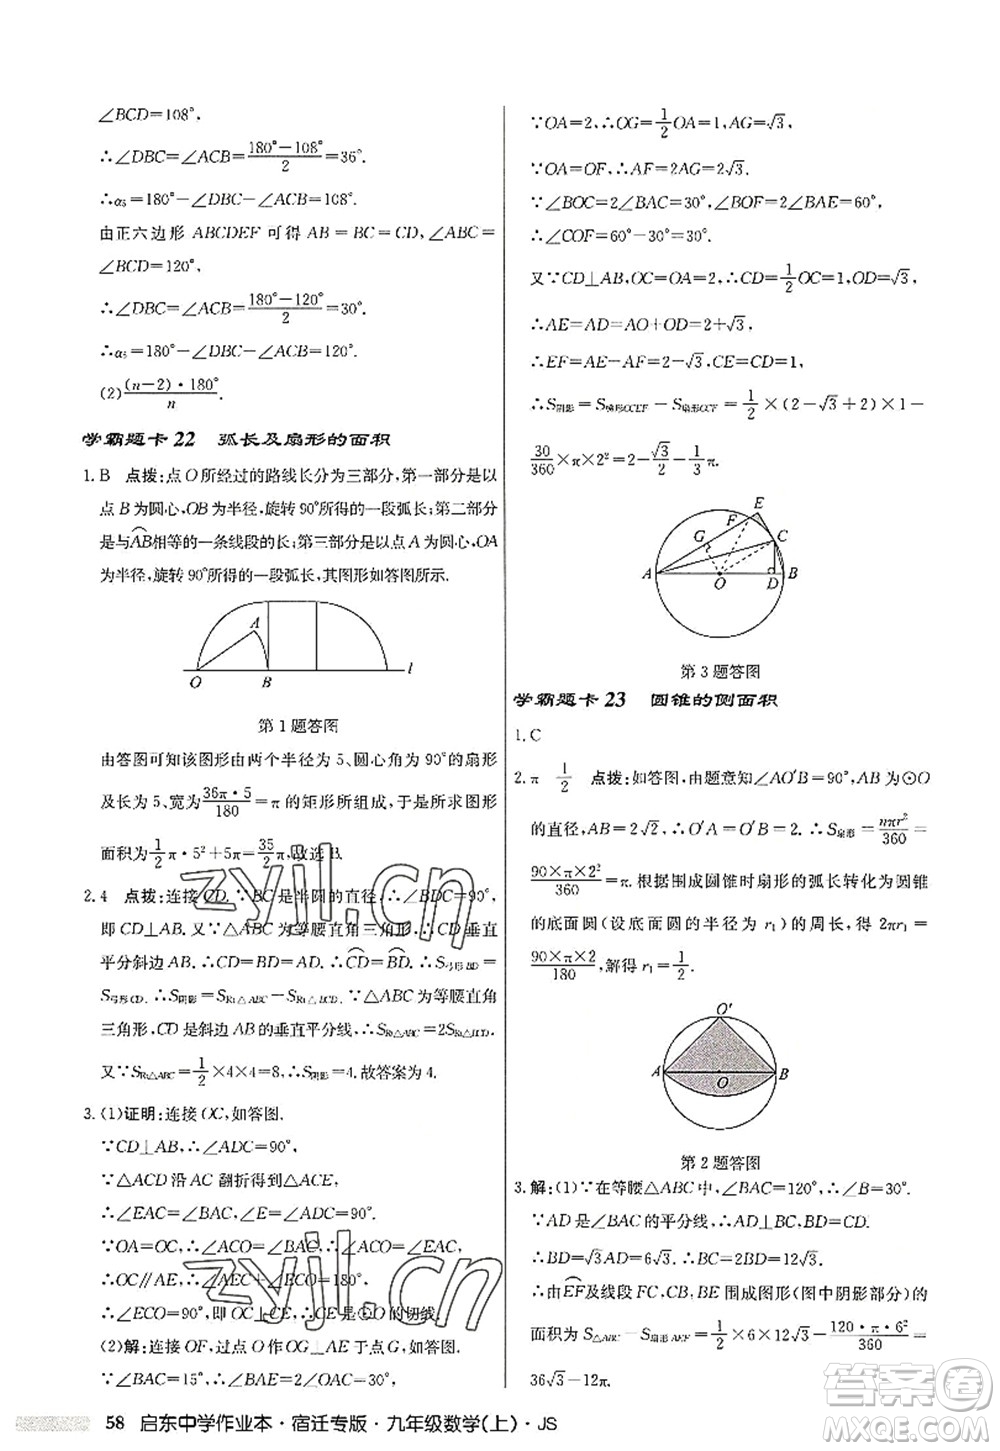 ∠BCD=108°,
∴∠DBC=∠ACB=\frac{180°-108°}{2}=36°.
∴α₅=180°-∠DBC-∠ACB=108°.
由正六边形 ABCDEF 可得 AB=BC=CD,∠ABC=
∠BCD=120°,
∴∠DBC=∠ACB=\frac{180°-120°}{2}=30°.
∴α₆=180°-∠DBC-∠ACB=120°.
(2)\frac{(n-2)·180°}{n}.
学霸题卡22 弧长及扇形的面积
1. B 点拨:点O所经过的路线长分为三部分,第一部分是以
点B为圆心,OB为半径,旋转90°所得的一段弧长;第二部分
是与\overset{⌒}{AB}相等的一条线段的长;第三部分是以点A为圆心,OA
为半径,旋转90°所得的一段弧长,其图形如答图所示.
A
O B l
第1题答图
由答图可知该图形由两个半径为5、圆心角为90°的扇形
及长为5、宽为\frac{36π·5}{180}=π的矩形所组成,于是所求图形
面积为\frac{1}{2}π·5²+5π=\frac{35}{2}π,故选B.
2. 4 点拨:连接CD.∵BC是半圆的直径,∴∠BDC=90°,
即CD⊥AB.又∵△ABC为等腰直角三角形,∴CD垂直
平分斜边AB.∴CD=BD.∴\overset{⌒}{CD}=\overset{⌒}{BD}.∴S弓形BD=
S弓形CD.∴S阴影=S_{Rt△ABC}-S_{Rt△BCD}.∵△ABC为等腰直角
三角形,CD是斜边AB的垂直平分线,∴S_{Rt△ABC}=2S_{Rt△BCD}.
又∵S_{Rt△ABC}=\frac{1}{2}×4×4=8,∴S阴影=4.故答案为4.
3. (1)证明:连接OC,如答图.
∵CD⊥AB,∴∠ADC=90°.
∵△ACD沿AC翻折得到△ACE,
∴∠EAC=∠BAC,∠E=∠ADC=90°.
∵OA=OC,∴∠BAC=∠OCA.∴∠OCA=∠EAC.
∴OC∥AE.∴∠AEC+∠ECO=180°.
∴∠ECO=90°,即OC⊥CE.∴CE是⊙O的切线.
(2)解:连接OF,过点O作OG⊥AE于点G,如答图.
∵∠BAC=15°,∴∠BAE=2∠BAC=30°.
∵OA=2,∴OG=\frac{1}{2}OA=1,AG=√3.
∵OA=OF,∴AF=2AG=2√3.
∵∠BOC=2∠BAC=30°,∠BOF=2∠BAE=60°,
∴∠COF=60°-30°=30°.
又∵CD⊥AB,OC=OA=2,∴CD=\frac{1}{2}OC=1,OD=√3,
∴AE=AD=AO+OD=2+√3,
∴EF=AE-AF=2-√3,CE=CD=1,
∴S阴影=S梯形OCEF-S扇形OCF=\frac{1}{2}×(2-√3+2)×1-
\frac{30}{360}×π×2²=2-\frac{√3}{2}-\frac{1}{3}π.
E
F
G C
A O D B
第3题答图
学霸题卡23 圆锥的侧面积
1. C
2. π \frac{1}{2} 点拨:如答图,由题意知∠AO′B=90°,AB为⊙O
的直径,AB=2√2,∴O′A=O′B=2.∴S扇形=\frac{nπr²}{360}=
\frac{90×π×2²}{360}=π.根据围成圆锥时扇形的弧长转化为圆锥
的底面圆(设底面圆的半径为r₁)的周长,得2πr₁=
\frac{90×π×2}{180},解得r₁=\frac{1}{2}.
O′
A O B
第2题答图
3. 解:(1)∵在等腰△ABC中,∠BAC=120°,∴∠B=30°.
∵AD是∠BAC的平分线,∴AD⊥BC,BD=CD.
∴BD=√3AD=6√3.∴BC=2BD=12√3.
∴由\overset{⌒}{EF}及线段FC,CB,BE围成图形(图中阴影部分)的
面积为S_{△ABC}-S_{扇形AEF}=\frac{1}{2}×6×12√3-\frac{120·π·6²}{360}=
36√3-12π.
58 启东中学作业本·宿迁专版·九年级数学(上)·JS
zyjl.cn
zyjl.cn
答案圈
MXQE.COM